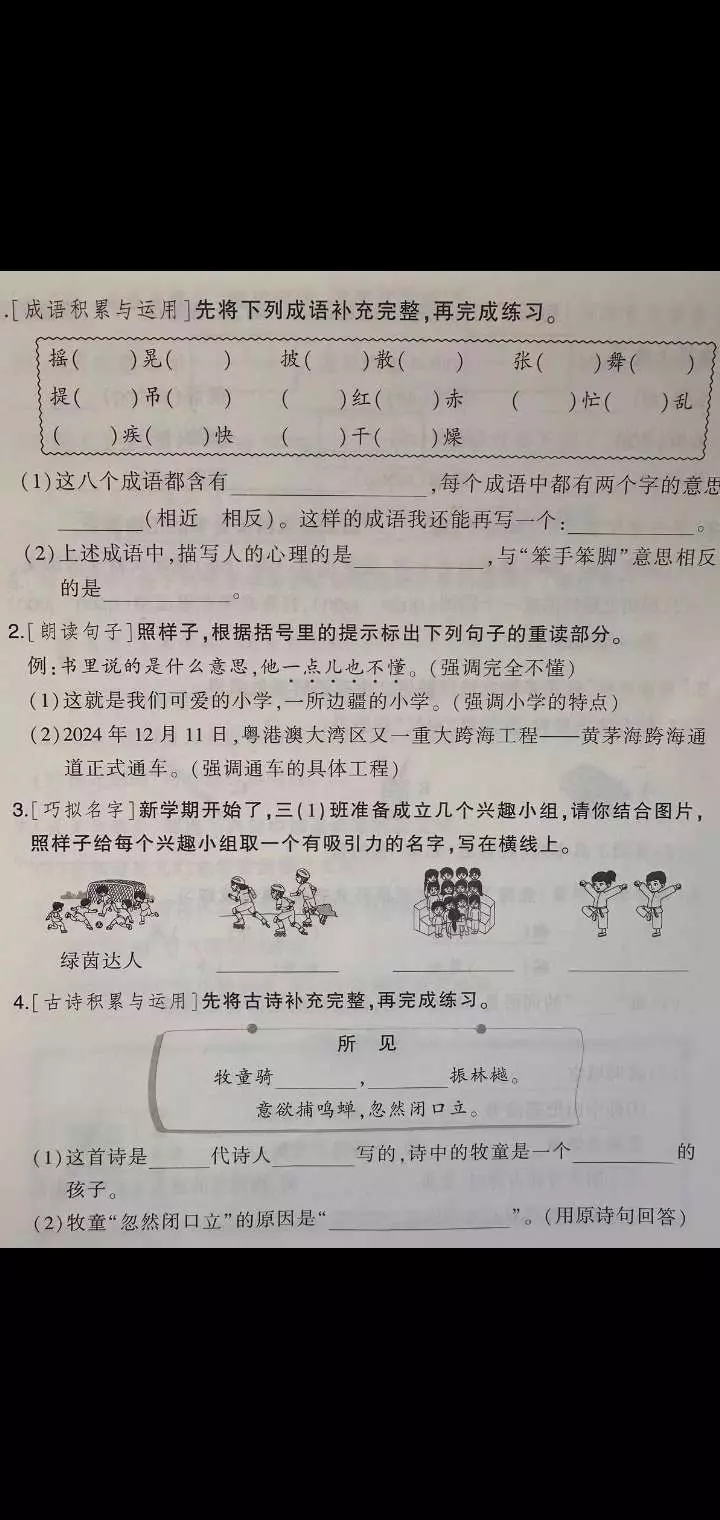 .[成语积累与运用]先将下列成语补充完整,再完成练习。
摇(  )晃(  ) 披(  )散(  ) 张(  )舞(  )
提(  )吊(  ) (  )红(  )赤 (  )忙(  )乱
(  )疾(  )快 (  )干(  )燥
(1)这八个成语都含有____________,每个成语中都有两个字的意思
______(相近 相反)。这样的成语我还能再写一个:________。
(2)上述成语中,描写人的心理的是________,与“笨手笨脚”意思相反
的是________。
2.[朗读句子]照样子,根据括号里的提示标出下列句子的重读部分。
例:书里说的是什么意思,他一点儿也不懂。(强调完全不懂)
(1)这就是我们可爱的小学,一所边疆的小学。(强调小学的特点)
(2)2024年12月11日,粤港澳大湾区又一重大跨海工程——黄茅海跨海通
道正式通车。(强调通车的具体工程)
3.[巧拟名字]新学期开始了,三(1)班准备成立几个兴趣小组,请你结合图片,
照样子给每个兴趣小组取一个有吸引力的名字,写在横线上。
绿茵达人 ________ ________ ________
4.[古诗积累与运用]先将古诗补充完整,再完成练习。
所 见
牧童骑______,______振林樾。
意欲捕鸣蝉,忽然闭口立。
(1)这首诗是____代诗人______写的,诗中的牧童是一个_______的
孩子。
(2)牧童“忽然闭口立”的原因是“____________”。(用原诗句回答)